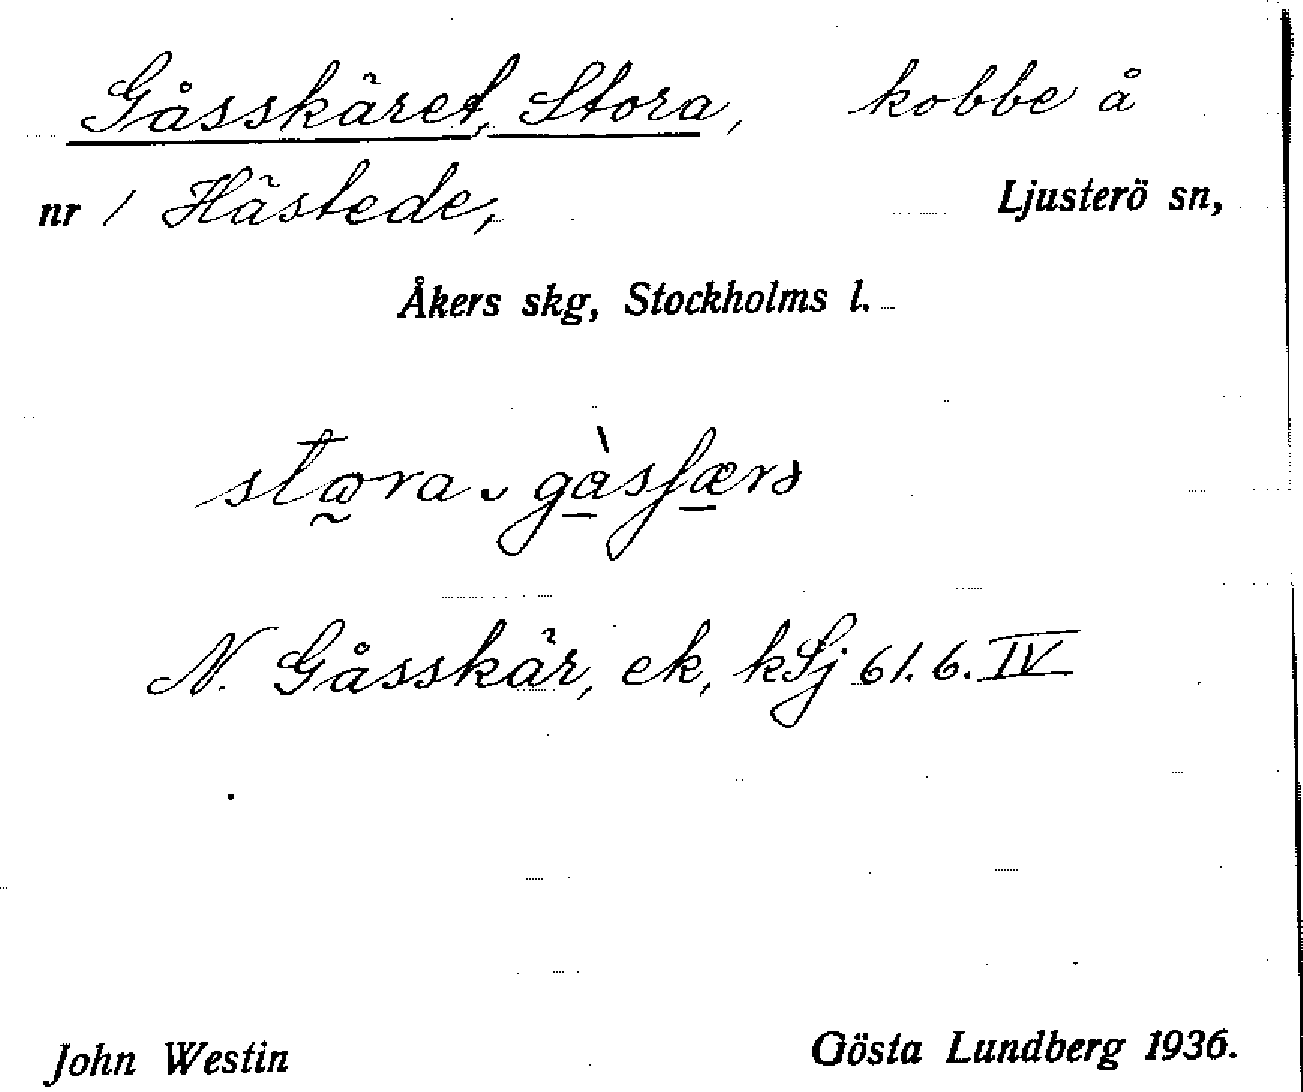 Gåsskäret, Stora, kobbe å
nr 1 Hästede, Ljusterö sn,
Åkers skg, Stockholms l.
N. Gåsskär, ek, kSj 61.6.IV
John Westin Gösta Lundberg 1936.